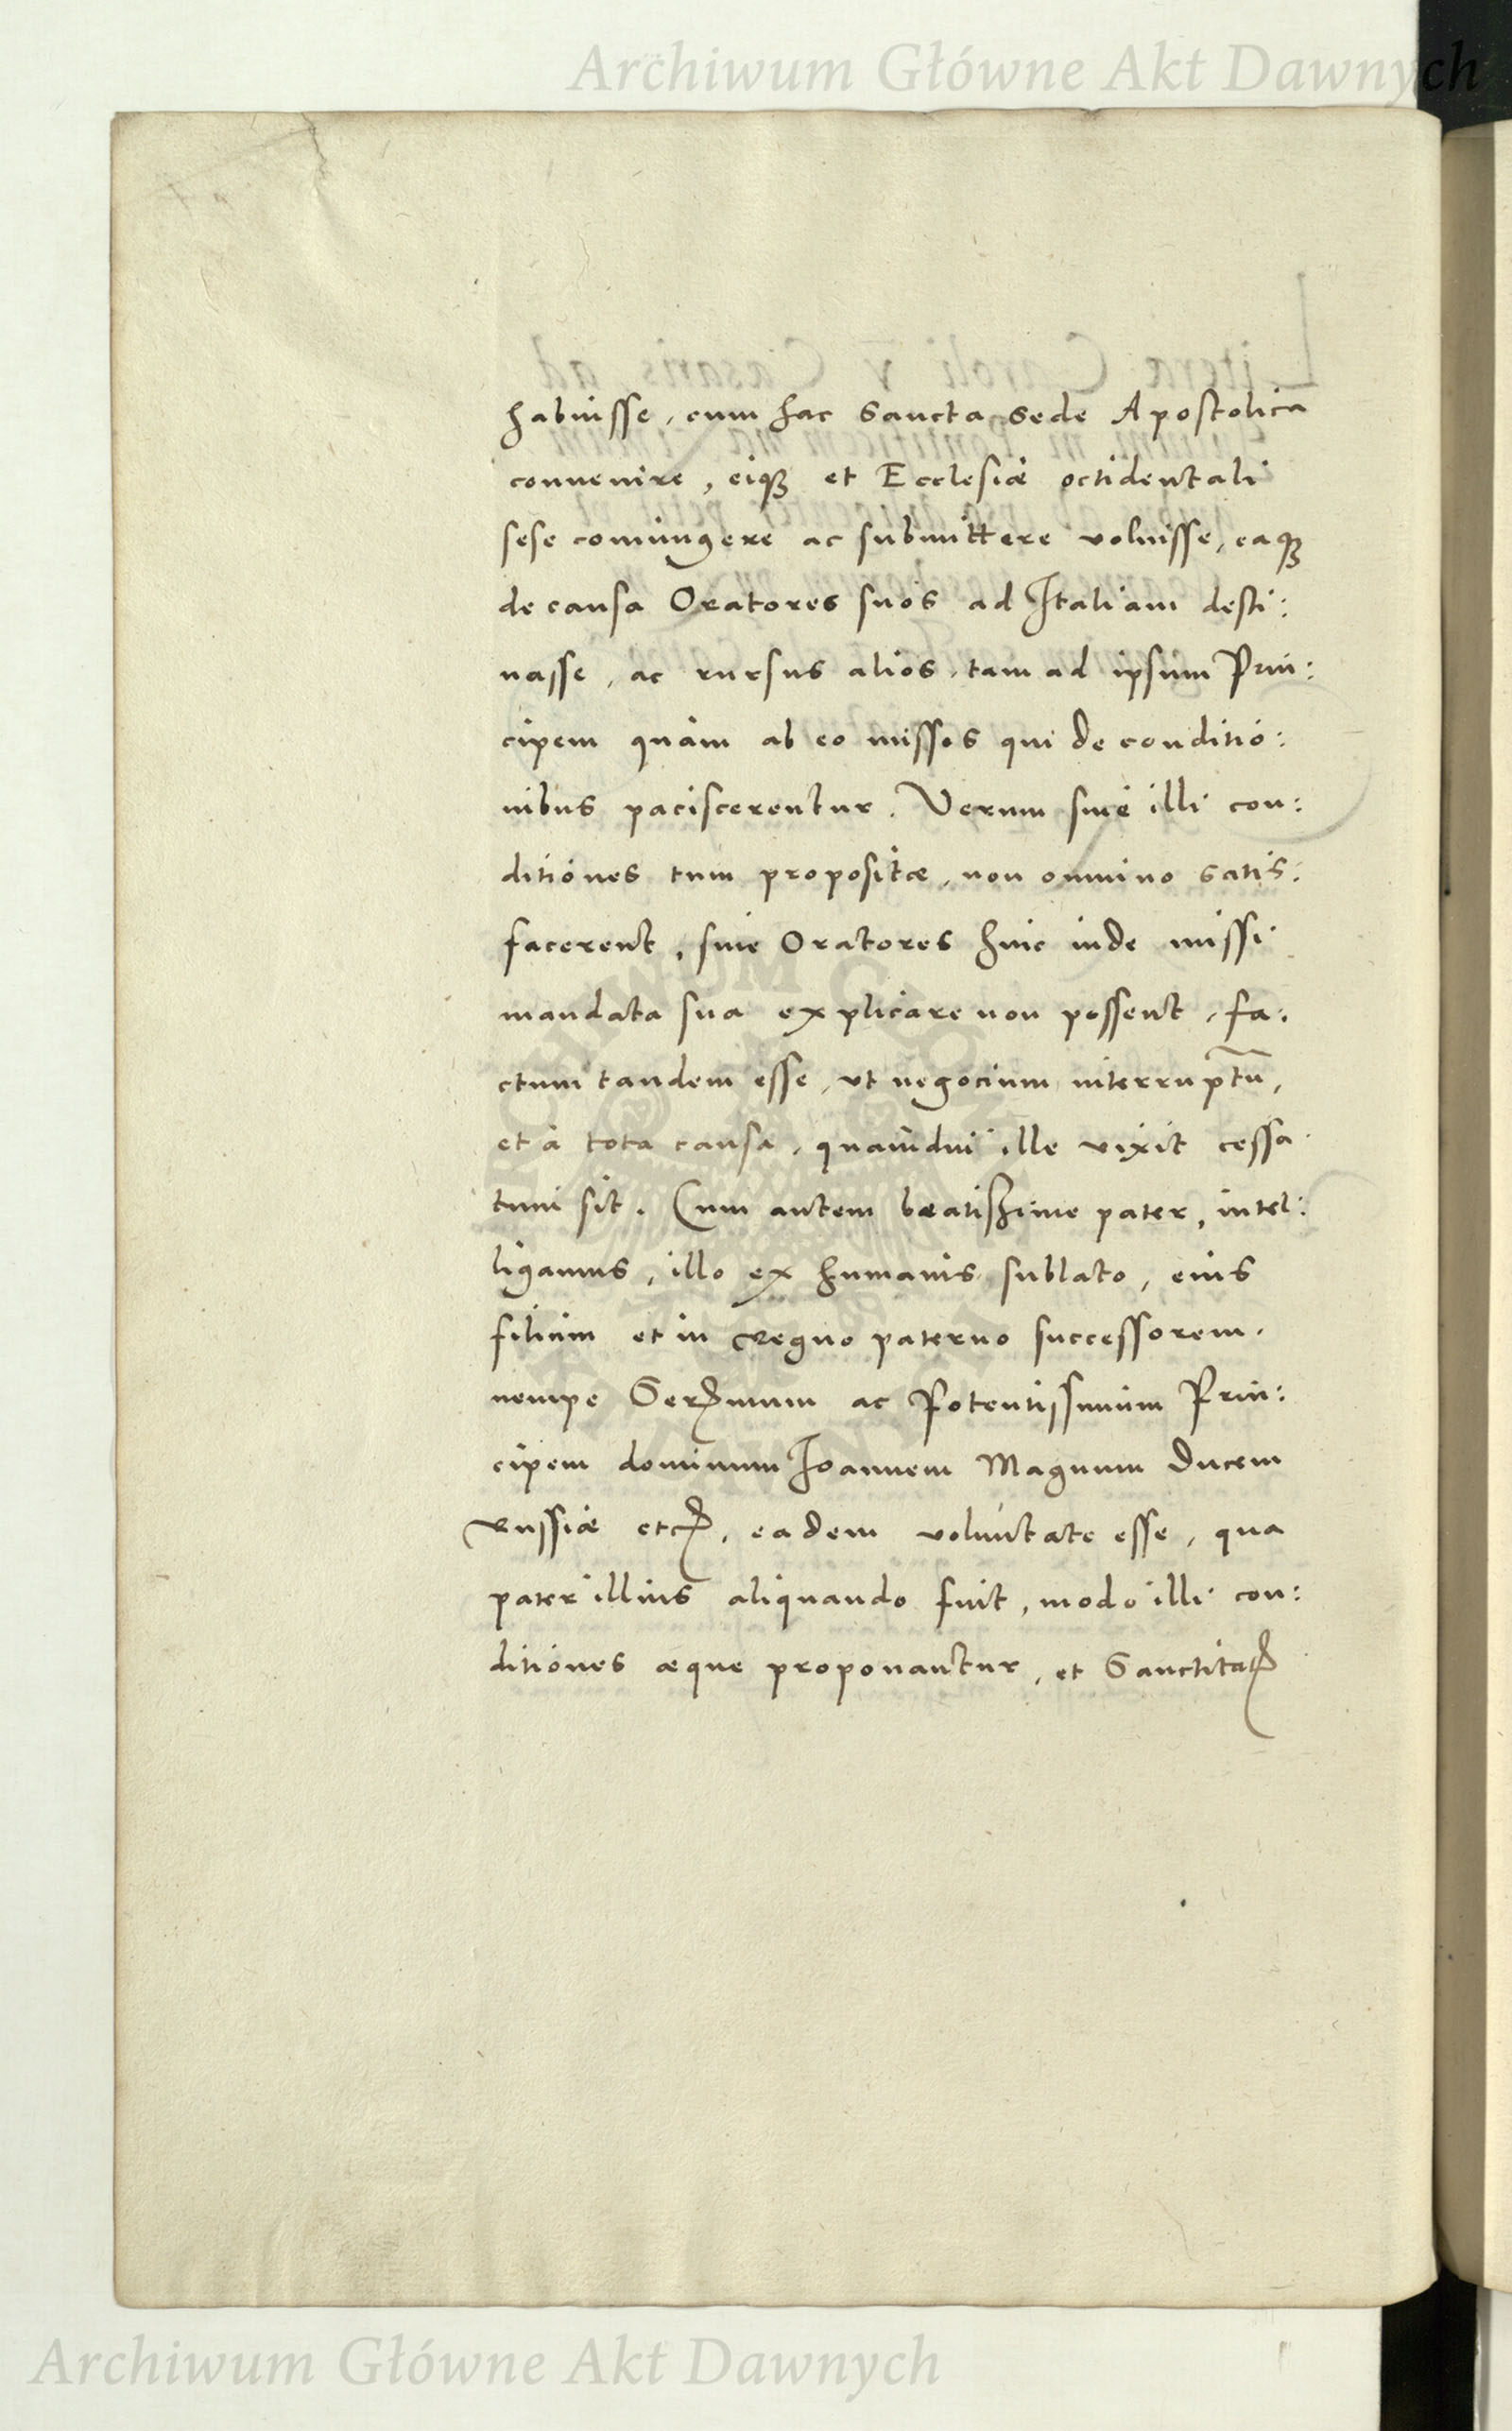 Archiwum Główne Akt Dawnych
habuisse, cum hac sancta sede Apostolica
conuenire, eiqꝫ et Ecclesiæ occidentali
sese coniungere ac submittere voluisse, eaqꝫ
de causa Oratores suos ad Italiam desti:
nasse, ac rursus alios, tam ad ipsum Prin:
cipem quàm ab eo missos qui de conditio:
nibus paciscerentur. Verum siue illi con:
ditiones tum propositæ, non omnino satis:
facerent, siue Oratores hinc inde missi
mandata sua explicare non possent, fa:
ctum tandem esse, vt negocium interruptũ,
et à tota causa, quamdiu ille vixit cessa
tum sit. Cum autem beatissime pater, intel:
ligamus, illo ex humanis sublato, eius
filium et in regno paterno successorem,
nempe Serꝭmum ac Potentissimum Prin:
cipem dominum Ioannem Magnum Ducem
Russiæ etcꝭ, eadem voluntate esse, qua
pater illius aliquando fuit, modo illi con:
ditiones æque proponantur, et Sanctitatꝭ
Archiwum Główne Akt Dawnych